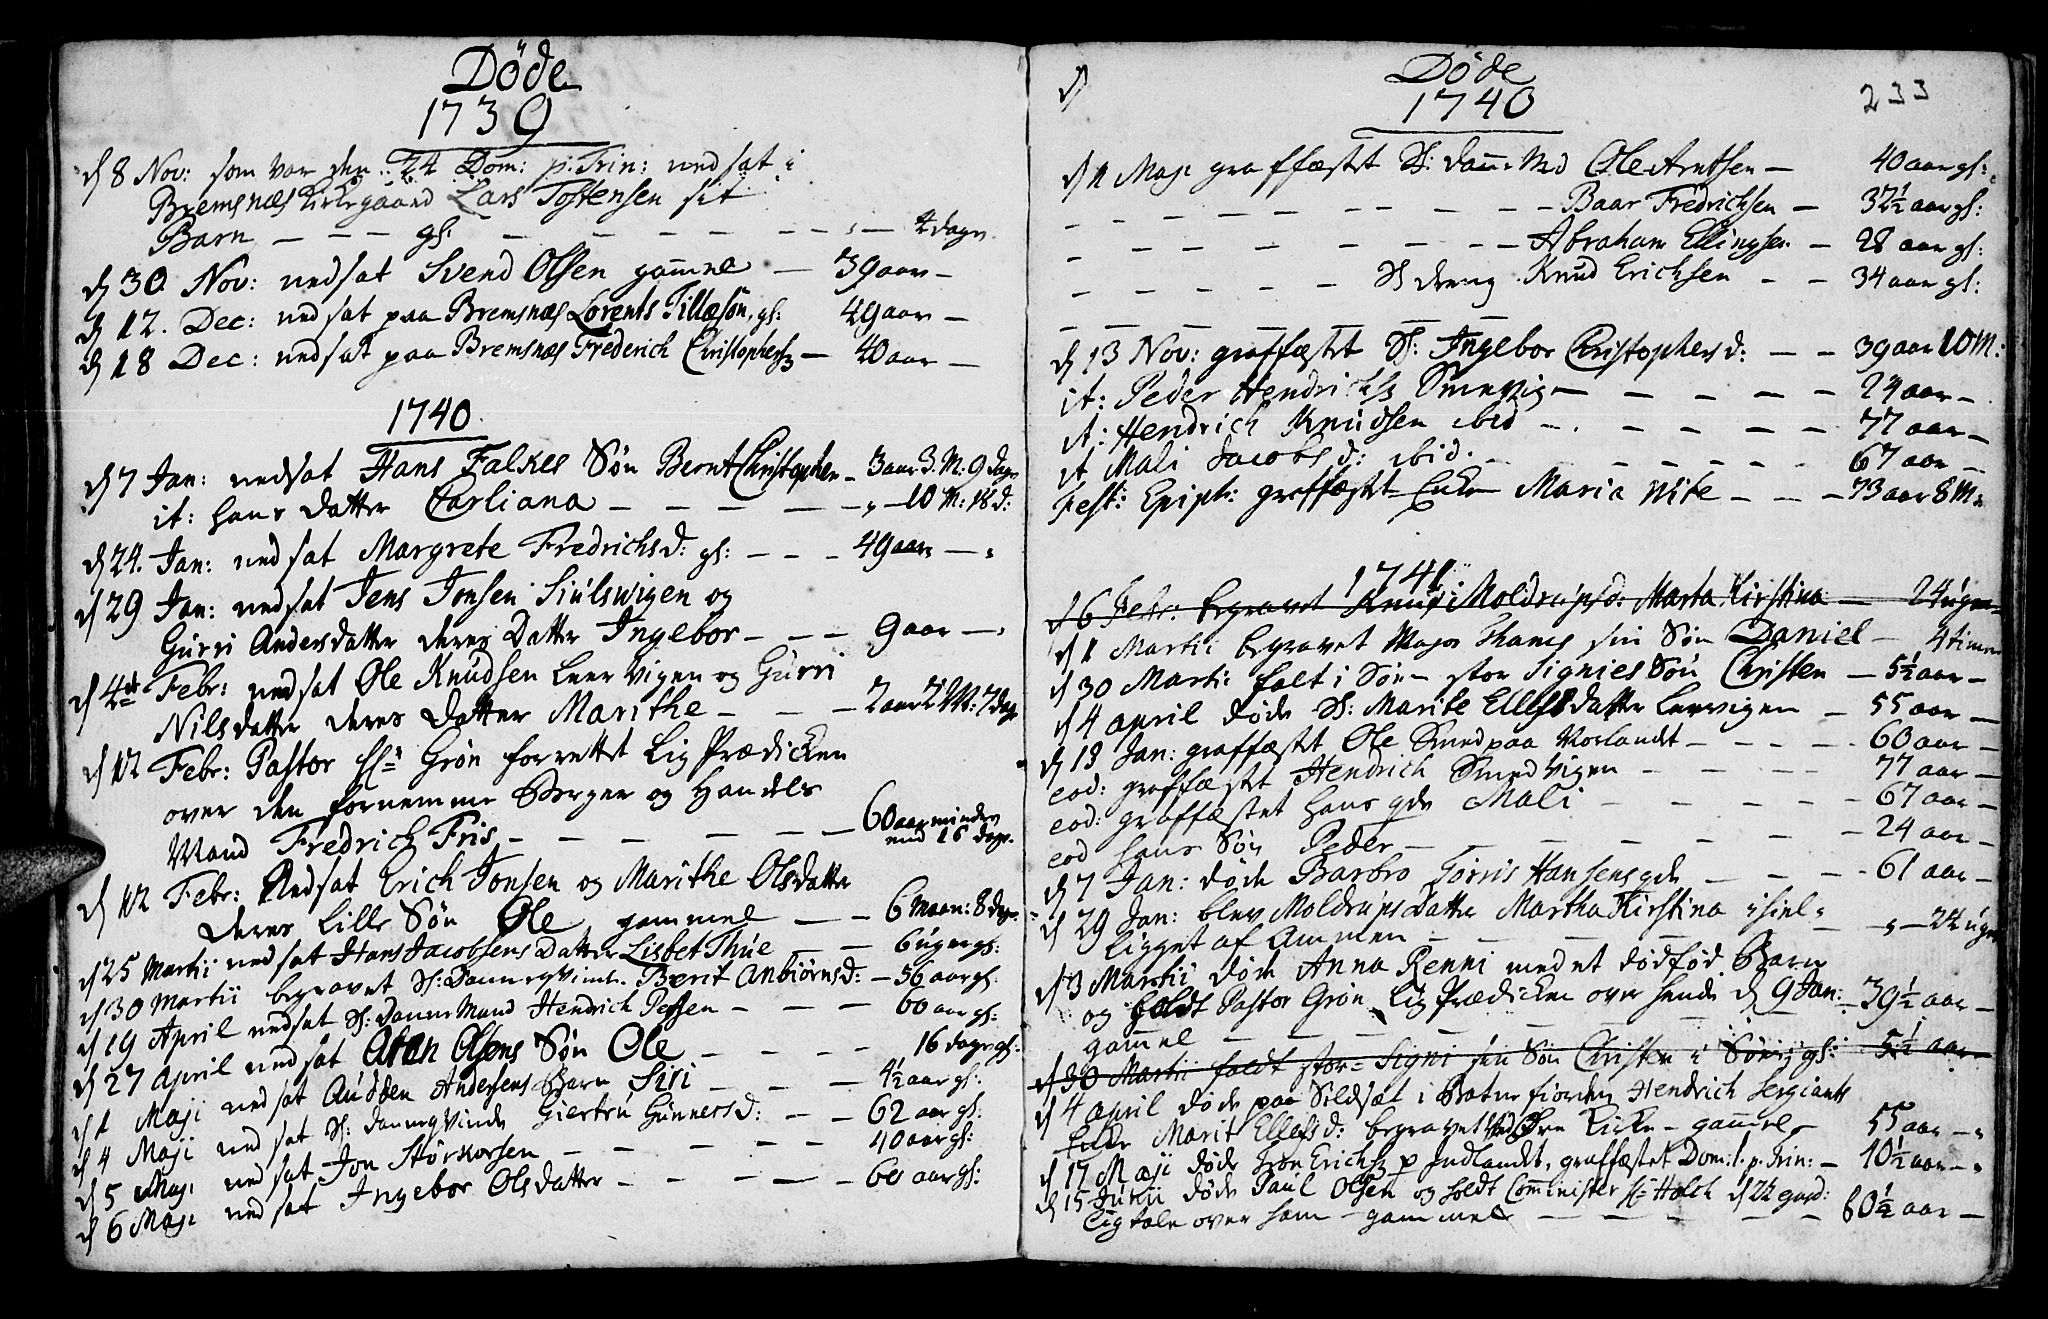 Døde
1739
d 8 Nov: som var den 24 Dom: p. Trin: nedsat i
Bremsnæs Kirkegaard Lars Tostensen sit
Barn — — — gl: — — — — — 4 dage
d 30 Nov: nedsat Svend Olsen gamel — 39 aar —
d 12. Dec: nedsat paa Bremsnæs Lorents Tillæsøn, gl: 49 aar —
d 18 Dec: nedsat paa Bremsnæs Frederich Christophers — 40 aar —
1740
d 7 Jan: nedsat Hans Falkes Søn Bernt Christopher — 3 aar 3. M: 9 dage
it: hans datter Carliana — — — — — „ — 10 M: 18 d:
d 24. Jan: nedsat Margrete Fredrichsd: gl: — — — 49 aar —
d 29 Jan: nedsat Jens Jonsen Siulswigen og
Gurri Andersdatter deres Datter Ingebor — — — 9 aar —
d 4de Febr: nedsat Ole Knudsen Leer Vigen og Gurri
Nilsdatter deres Datter Marithe — — — 2 aar 2 M: 7 dage
d 12 Febr: Pastor Hr Grøn forrettet Lig Prædicken
over den fornemme Borger og Handels
Mand Fredrich Fris — — — — — 60 aar minder
end 16 dage.
d 12 Febr: Nedsat Erich Jonsen og Marithe Olsdatter
deres lille Søn Ole gammel — — 6 Maan: 8 dage
d 25 Martii nedsat Hans Jacobsens Datter Lisbet Thue — — 6 uger gl:
d 30 Martii begravet Sl: Danneqvinde Berit Anbiørnsd: — 56 aar gl:
d 19 April nedsat Sl: Danne Mand Hendrich Pessen — — — 60 aar gl:
d 27 April nedsat Olsens Søn Ole — — — — 16 dage gl:
d 1 Maji nedsat Audden Andersens Barn Siri — — — 4½ aar gl:
d 4 Maji nedsat Sl: danneqvinde Giertru Gunnersd: — — 62 aar gl:
d 5 Maji nedsat Jon Størkorsen — — — — 40 aar gl:
d 6 Maji nedsat Ingebor Olsdatter — — — — — 60 aar gl:
Døde
1740
233
d 11 Maji graffæstet Sl: danne Md Ole Arntsen — 40 aar gl:
— — — — — — — — — Baar Fredrichsen — 32½ aar gl:
— — — — — — — — Abraham Ellingsen — 28 aar gl:
— — — — — — Sl dreng Knud Erichsen — — 34 aar gl:
d 13 Nov: graffæstet Sl: Ingebor Christophersd: — — 39 aar 10 M:
it: Peder Hendrichs Smevig — — — — — 24 aar —
it: Hendrich Knudsen ibid — — — — — 77 aar —
it Mali Jacobsd: ibid. — — — — — — 67 aar —
Fest: Epiph: graffæstet Enke Maria Nite — — — 73 aar 8 M:
1741
16 Febr: begravet Knud Moldrups d: Marta Kirstina — 24 uger
d 1 Martii begravet Major Thams sin Søn Daniel — 4 timer
d 30 Martii falt i Søen stor Signies Søn Christen — 5½ aar —
d 4 april døde Sl: Marite Ellefsdatter Leervigen — 55 aar —
d 13 Jan: graffæstet Ole Smed paa Vorlandet — — — — 60 aar —
eod: graffæstet Hendrich Smed Vigen — — — — 77 aar —
eod: graffæstet hans qde Mali — — — — — 67 aar —
eod hans Søn Peder — — — — — — 24 aar —
d 7 Jan: døde Barbro Torris Hansens qde — — — 61 aar —
d 29 Jan: blev Moldrups Datter Martha Kirstina ihiel-
ligget af Ammen — — — — — — „ — 24 uger
d 3 Martii døde Anna Renni med et dødfød Barn
og holdt Pastor Grøn Lig Prædicken over hende d 9 Jan:
gamel — — — — — — — 39½ aar —
d 30 Martii faldt stor- Signi sin Søn Christen i Søen gl: 5½ aar —
d 4 april døde paa Sildsæt i Baturfiorden Hendrich Sergiants
Enke Marit Ellefsd: begravet ved Øre Kirke — gammel — 55 aar —
d 17 Maji døde Iron Erichs p Indlandet, graffæstet Dom: 1. p. Trin: — 10½ aar —
d 15 Junii døde Paul Olsen og holdt Comminister Hr Holck d 22  
Ligtale over ham — gammel — — — — 60½ aar —